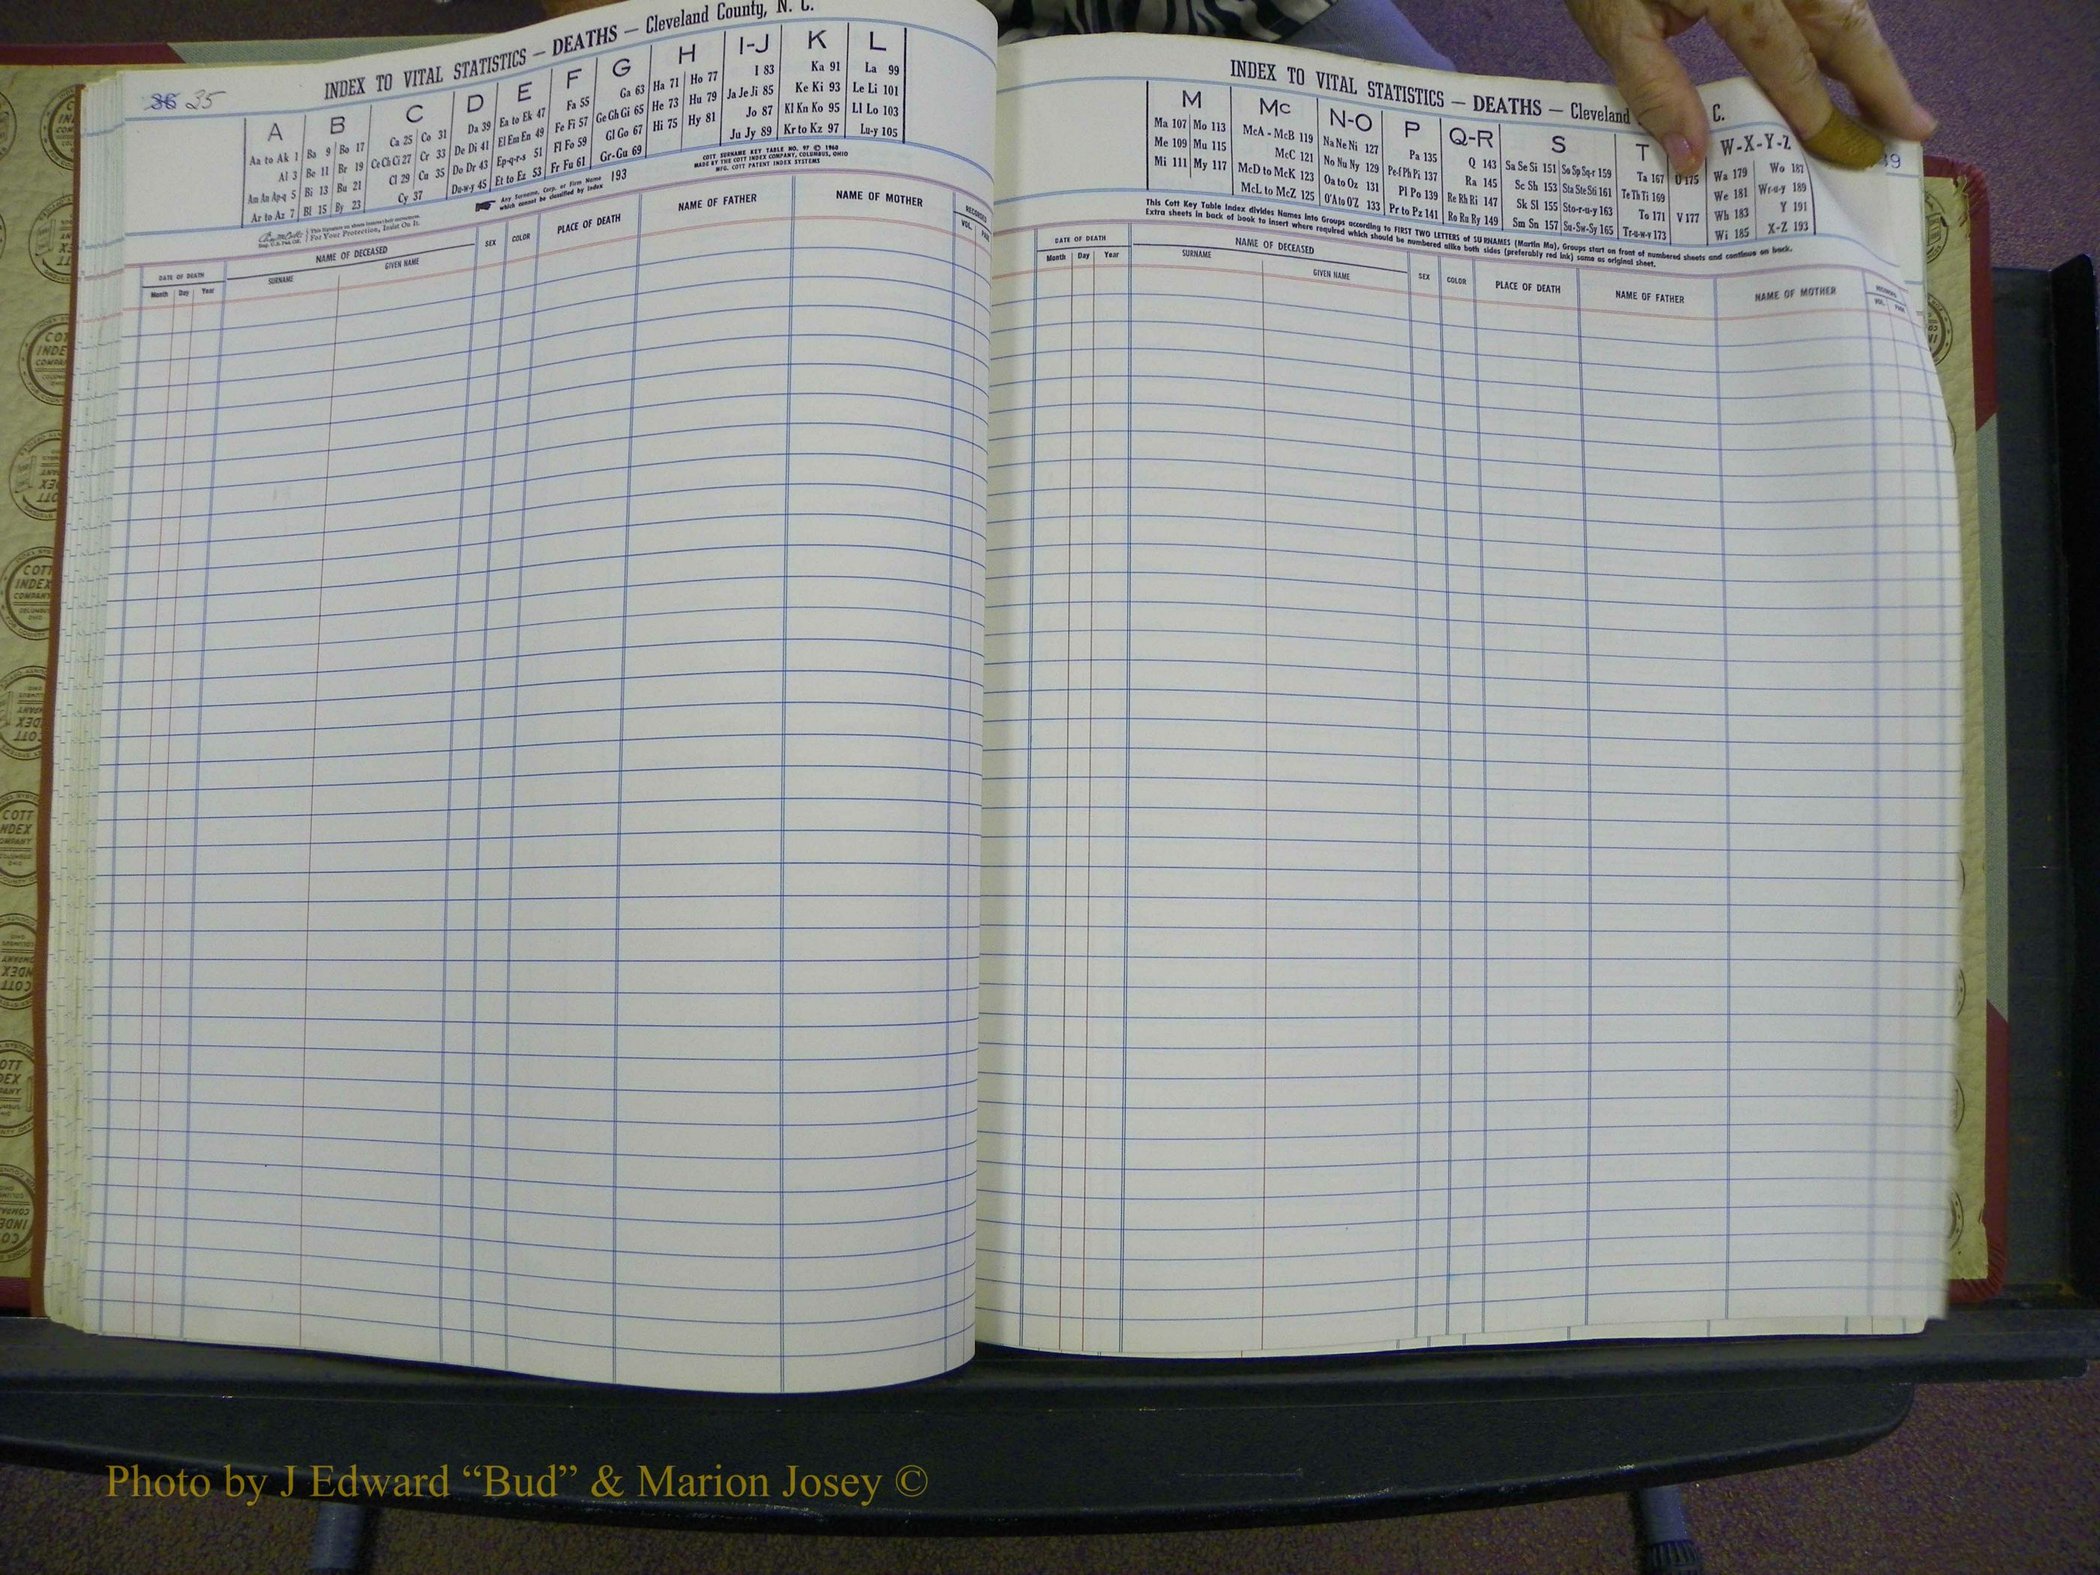 36 35
INDEX TO VITAL STATISTICS — DEATHS — Cleveland County, N. C.
A B C D E F G H I-J K L
Aa to Ak 1 Ba 9 Bo 17 Ca 25 Co 31 Da 39 Ea to Ek 47 Fa 55 Ga 63 Ha 71 Ho 77 I 83 Ka 91 La 99
Al 3 Be 11 Br 19 Ce Ch Ci 27 Cr 33 De Di 41 El Em En 49 Fe Fi 57 Ge Gh Gi 65 He 73 Hu 79 Ja Je Ji 85 Ke Ki 93 Le Li 101
Am An Ap-q 5 Bi 13 Bu 21 Cl 29 Cu 35 Do Dr 43 Ep-q-r-s 51 Fl Fo 59 Gl Go 67 Hi 75 Hy 81 Jo 87 Kl Kn Ko 95 Ll Lo 103
Ar to Az 7 Bl 15 By 23 Cy 37 Du-w-y 45 Et to Ez 53 Fr Fu 61 Gr-Gu 69 Ju Jy 89 Kr to Kz 97 Lu-y 105
For Your Protection, Insist On It.
Any Surname, Corp. or Firm Name
which cannot be classified by Index 193
COTT SURNAME KEY TABLE NO. 97 © 1960
MADE BY THE COTT INDEX COMPANY, COLUMBUS, OHIO
MFG. COTT PATENT INDEX SYSTEMS
DATE OF DEATH NAME OF DECEASED SEX COLOR PLACE OF DEATH NAME OF FATHER NAME OF MOTHER RECORDED
Month Day Year SURNAME GIVEN NAME VOL. PAGE
INDEX TO VITAL STATISTICS — DEATHS — Cleveland C.
M Mc N-O P Q-R S T W-X-Y-Z
Ma 107 Mo 113 McA - McB 119 Na Ne Ni 127 Pa 135 Q 143 Sa Se Si 151 So Sp Sq-r 159 Ta 167 U 175 Wa 179 Wo 187
Me 109 Mu 115 McC 121 No Nu Ny 129 Pe-f Ph Pi 137 Ra 145 Sc Sh 153 Sta Ste Sti 161 Te Th Ti 169 We 181 Wr-u-y 189
Mi 111 My 117 McD to McK 123 Oa to Oz 131 Pl Po 139 Re Rh Ri 147 Sk Sl 155 Sto-r-u-y 163 To 171 V 177 Wh 183 Y 191
McL to McZ 125 O'A to O'Z 133 Pr to Pz 141 Ro Ru Ry 149 Sm Sn 157 Su-Sw-Sy 165 Tr-u-w-y 173 Wi 185 X-Z 193
This Cott Key Table Index divides Names into Groups according to FIRST TWO LETTERS of SURNAMES (Martin Ma), Groups start on front of numbered sheets and continue on back.
Extra sheets in back of book to insert where required which should be numbered alike both sides (preferably red ink) same as original sheet.
DATE OF DEATH NAME OF DECEASED SEX COLOR PLACE OF DEATH NAME OF FATHER NAME OF MOTHER RECORDED
Month Day Year SURNAME GIVEN NAME VOL. PAGE
Photo by J Edward “Bud” & Marion Josey ©